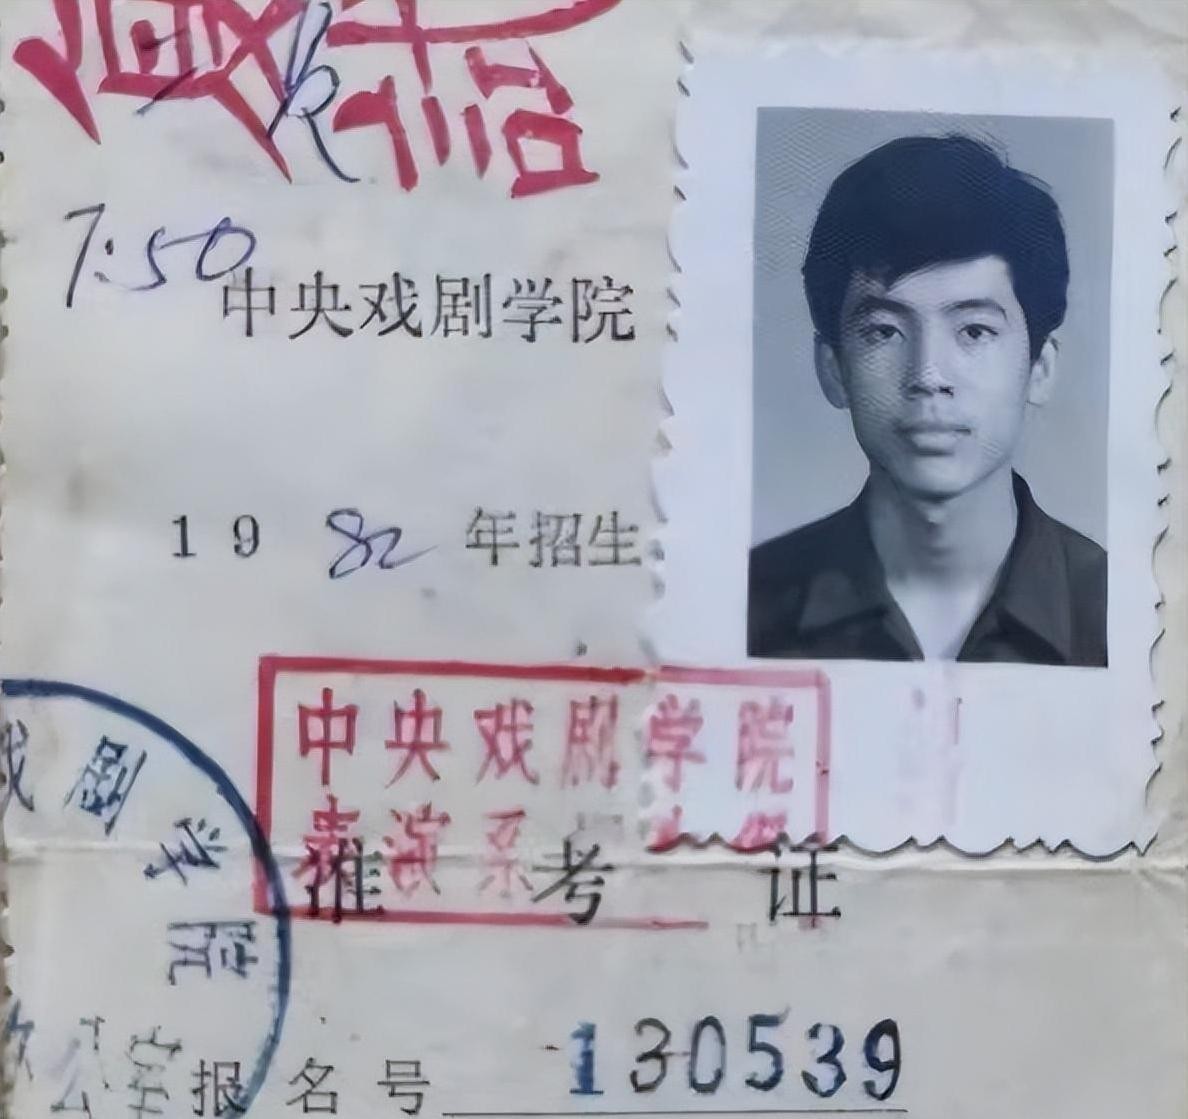 7:50
中央戏剧学院
1982年招生
中央戏剧学院
表演系
准考证
剧学院
报名号 130539